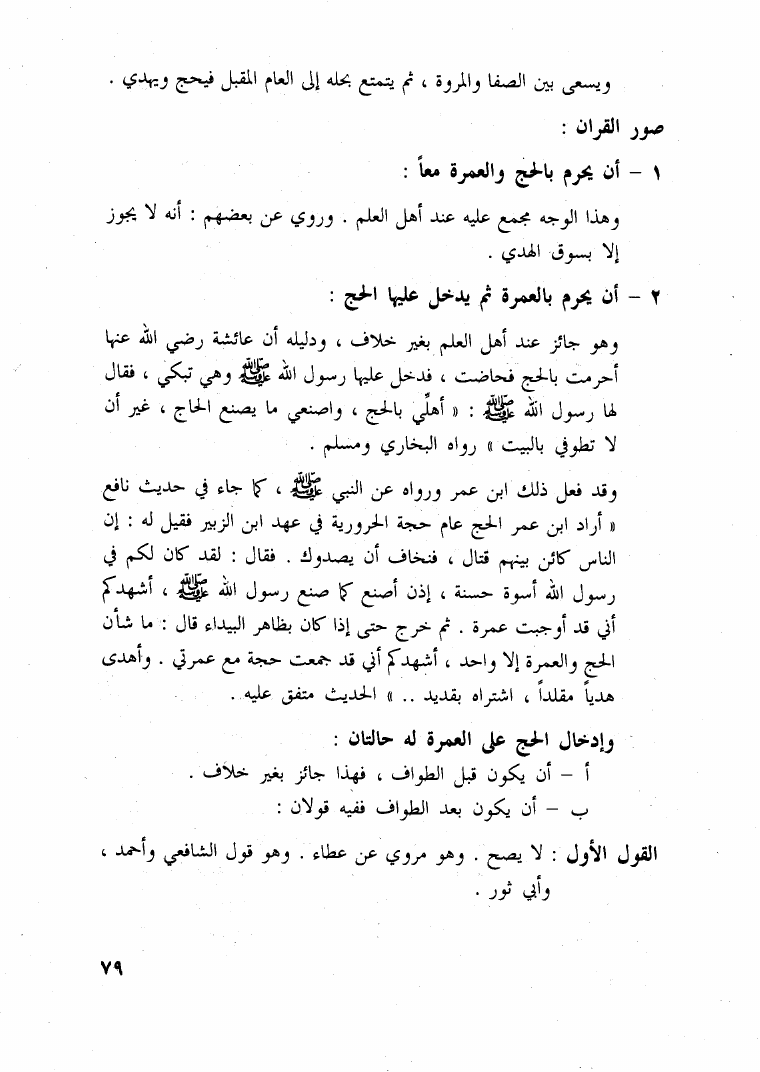 ويسعى بين الصفا والمروة ، ثم يتمتع بحله إلى العام المقبل فيحج ويهدي .
صور القران :
١ – أن يحرم بالحج والعمرة معاً :
وهذا الوجه مجمع عليه عند أهل العلم . وروي عن بعضهم : أنه لا يجوز
إلا بسوق الهدي .
٢ – أن يحرم بالعمرة ثم يدخل عليها الحج :
وهو جائز عند أهل العلم بغير خلاف ، ودليله أن عائشة رضي الله عنها
أحرمت بالحج فحاضت ، فدخل عليها رسول الله ﷺ وهي تبكي ، فقال
لها رسول الله ﷺ : « أهلِّي بالحج ، واصنعي ما يصنع الحاج ، غير أن
لا تطوفي بالبيت » رواه البخاري ومسلم .
وقد فعل ذلك ابن عمر ورواه عن النبي ﷺ ، كما جاء في حديث نافع
« أراد ابن عمر الحج عام حجة الحرورية في عهد ابن الزبير فقيل له : إن
الناس كائن بينهم قتال ، فنخاف أن يصدوك . فقال : لقد كان لكم في
رسول الله أسوة حسنة ، إذن أصنع كما صنع رسول الله ﷺ ، أشهدكم
أني قد أوجبت عمرة . ثم خرج حتى إذا كان بظاهر البيداء قال : ما شأن
الحج والعمرة إلا واحد ، أشهدكم أني قد جمعت حجة مع عمرتي . وأهدى
هدياً مقلداً ، اشتراه بقديد .. » الحديث متفق عليه .
وإدخال الحج على العمرة له حالتان :
أ – أن يكون قبل الطواف ، فهذا جائز بغير خلاف .
ب – أن يكون بعد الطواف ففيه قولان :
القول الأول : لا يصح . وهو مروي عن عطاء . وهو قول الشافعي وأحمد ،
وأبي ثور .
٧٩